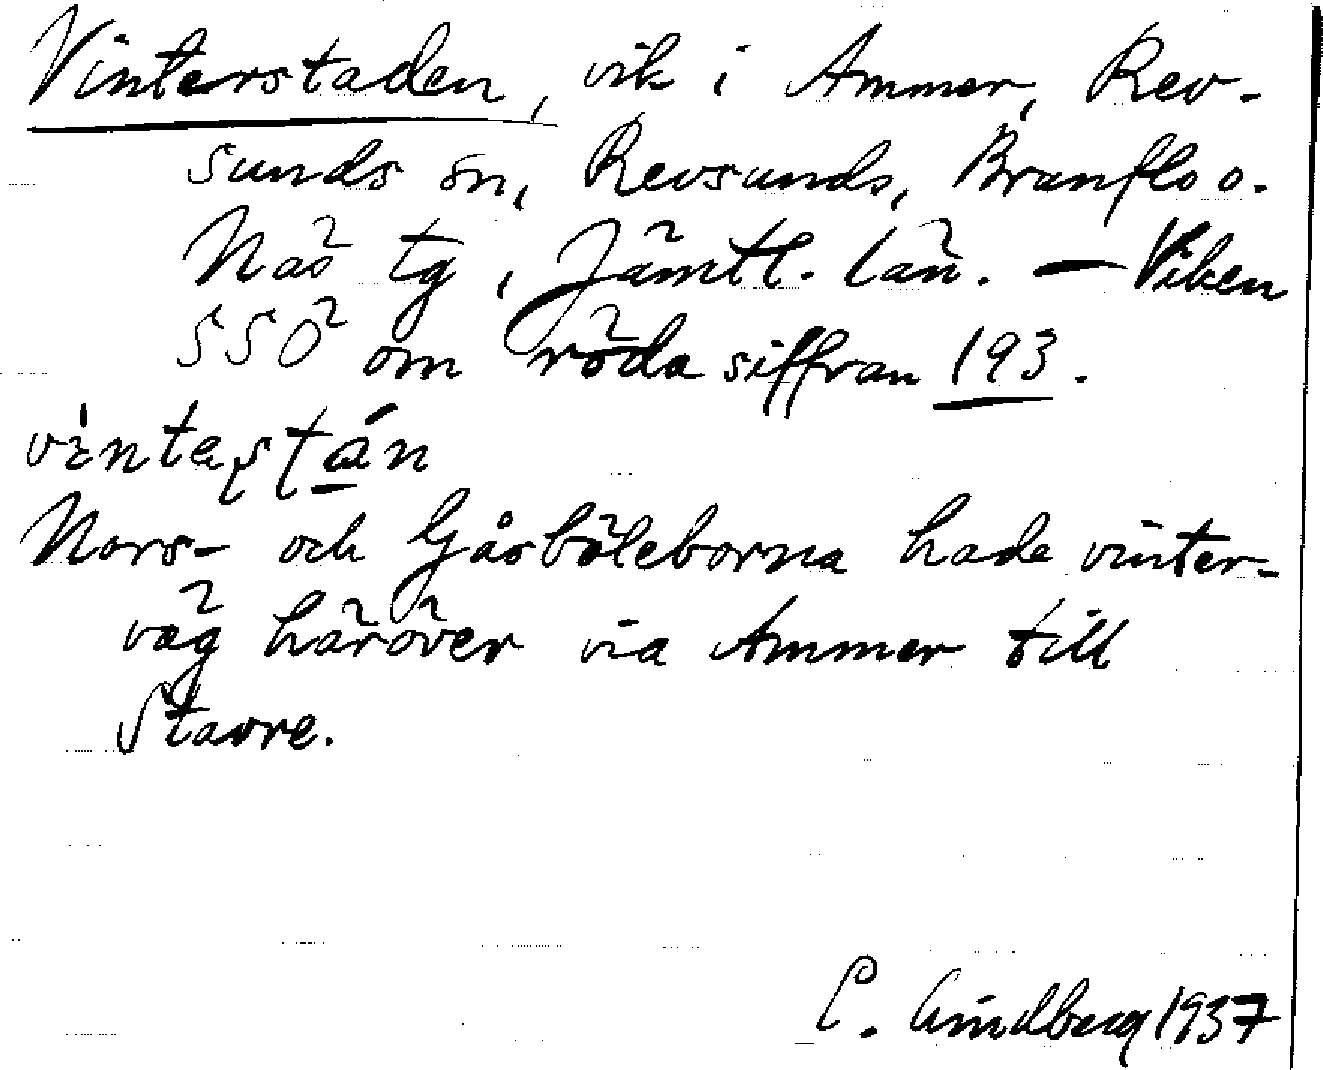 Vinterstaden, vik i Ammer, Rev-
sunds sn, Revsunds, Brunflo o.
Näs tg, Jämtl. län. — Viken
SSÖ om röda siffran 193.
Nors- och Gåsböleborna hade vinter-
väg häröver via Ammer till
Stavre.
C. Lindberg 1937